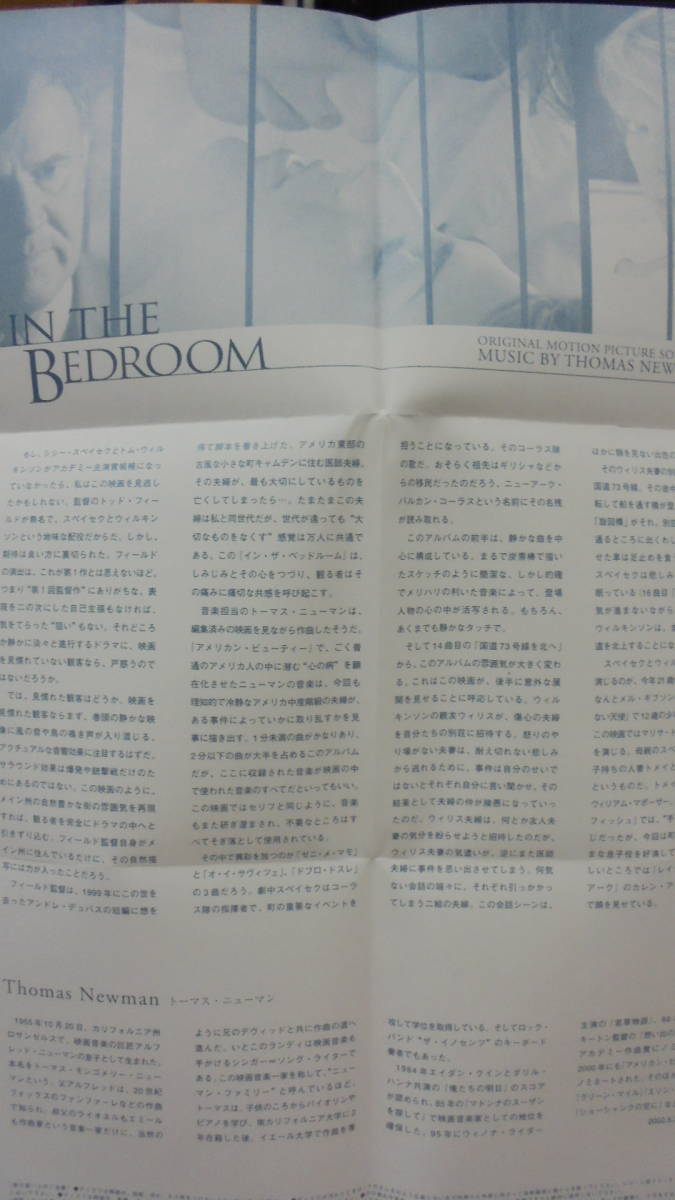 IN THE
BEDROOM
ORIGINAL MOTION PICTURE SO
MUSIC BY THOMAS NEW
もし、シシー・スペイセクとトム・ウィル
キンソンがアカデミー主演賞候補になっ
ていなかったら、私はこの映画を見逃し
たかもしれない。監督のトッド・フィー
ルドが無名で、スペイセクとウィルキン
ソンという地味な配役だからだ。しかし、
期待は良い方に裏切られた。フィールド
の演出は、これが第1作とは思えないほど。
つまり“第1回監督作”にありがちな、表
現を二の次にした自己主張もなければ、
気をてらった“狙い”もない。それどころ
か静かに淡々と進行するドラマに、映画
を見慣れていない観客なら、戸惑うので
はないだろうか。
では、見慣れた観客はどうか。映画を
見慣れた観客ならまず、巻頭の静かな映
像に風の音や鳥の鳴き声が入り混じる、
アクチュアルな音響効果に注目するはずだ。
サラウンド効果は爆発や銃撃戦だけのた
めにあるのではない。この映画のように、
メイン州の自然豊かな街の雰囲気を再現
すれば、観る者を完全にドラマの中へと
引きずり込む。フィールド監督自身がメ
イン州に住んでいるだけに、その自然描
写には力が入ったことだろう。
フィールド監督は、1999年にこの世を
去ったアンドレ・デュバスの短編に想を
得て脚本を書き上げた。アメリカ東部の
古風な小さな町キャムデンに住む医師夫婦。
その夫婦が、最も大切にしているものを
亡くしてしまったら…。たまたまこの夫
婦は私と同世代だが、世代が違っても“大
切なものをなくす”感覚は万人に共通で
ある。この「イン・ザ・ベッドルーム」は、
しみじみとその心をつづり、観る者はそ
の痛みに痛切な共感を呼び起こす。
音楽担当のトーマス・ニューマンは、
編集済みの映画を見ながら作曲したそうだ。
「アメリカン・ビューティー」で、ごく普
通のアメリカ人の中に潜む“心の病”を顕
在化させたニューマンの音楽は、今回も
理知的で冷静なアメリカ中産階級の夫婦が、
ある事件によっていかに取り乱すかを見
事に描き出す。1分未満の曲がかなりあり、
2分以下の曲が大半を占めるこのアルバム
だが、ここに収録された音楽が映画の中
で使われた音楽のすべてだといってもいい。
この映画ではセリフと同じように、音楽
もまた研ぎ澄まされ、不要なところはす
べてそぎ落として使用されている。
その中で異彩を放つのが「ゼニ・メ・マモ」
と「オ・イ・サヴィフェ」、「ドブロ・ドスレ」
の3曲だろう。劇中スペイセクはコーラ
ス隊の指揮者で、町の重要なイベントを
担うことになっている。そのコーラス隊
の歌だ。おそらく祖先はギリシャなどか
らの移民だったのだろう、ニューアーク・
バルカン・コーラスという名前にその名残
が読み取れる。
このアルバムの前半は、静かな曲を中
心に構成している。まるで炭素棒で描い
たスケッチのように簡潔な、しかし的確
でメリハリの利いた音楽によって、登場
人物の心の中が活写される。もちろん、
あくまでも静かなタッチで。
そして14曲目の「国道73号線を北へ」
から、このアルバムの雰囲気が大きく変わ
る。これはこの映画が、後半に意外な展
開を見せることに呼応している。ウィル
キンソンの親友ウィリスが、傷心の夫婦
を自分たちの別荘に招待する。怒りのや
り場がない夫妻は、耐え切れない悲しみ
から逃れるために、事件は自分のせいで
はないとそれぞれ自分に言い聞かせ、その
結果として夫婦の仲が険悪になっていっ
たのだ。ウィリス夫婦は、何とか友人夫
妻の気分を紛らせようと招待したのだが、
ウィリス夫妻の気遣いが、逆にまた医師
夫婦に事件を思い出させてしまう。何気
ない会話の端々に、それぞれ引っかかっ
てしまう二組の夫婦。この会話シーンは、
ほかに類を見ない出色の
そのウィリス夫妻の別
国道73号線。その途中
転して船を通す橋が登
「旋回橋」がそれ。別荘
通るところに出くわし
せた車は足止めを食
スペイセクは悲しみ
眠っている（16曲目「
気が進まないながら
ウィルキンソンは、
道を北上することにな
スペイセクとウィル
演じるのが、今年21歳
なんとメル・ギブソン
ない天使」で12歳の少
この映画ではマリサ・ト
を演じる。母親のスペ
子持ちの人妻トメイと
というものだ。トメイ
ウィリアム・マポーザー。
フィッシュ」では、“手
じだったが、今回は町
まな息子役を好演して
しいところでは「レイ
アーク」のカレン・ア
で顔を見せている。
Thomas Newman トーマス・ニューマン
1955年10月20日、カリフォルニア州
ロサンゼルスで、映画音楽の巨匠アルフ
レッド・ニューマンの息子として生まれた。
本名をトーマス・モンゴメリー・ニュー
マンという。父アルフレッドは、20世紀
フォックスのファンファーレなどの作曲
で知られ、叔父のライオネルもエミール
も作曲家という音楽一家だけに、当然の
ように兄のデヴィッドと共に作曲の道へ
進んだ。いとこのランディは映画音楽も
手がけるシンガー＝ソング・ライターで
ある。この映画音楽一家を称して、“ニュー
マン・ファミリー”と呼んでいるほど。
トーマスは、子供のころからバイオリンや
ピアノを学び、南カリフォルニア大学に2
年在籍した後、イエール大学で作曲を専
攻して学位を取得している。そしてロック・
バンド“ザ・イノセンツ”のキーボード
奏者でもあった。
1984年エイダン・クインとダリル・
ハンナ共演の「俺たちの明日」のスコア
が認められ、85年の「マドンナのスーザン
を探して」で映画音楽家としての地位を
確保した。95年にウィノナ・ライダー
主演の「若草物語」、96
キートン監督の「想い出の
アカデミー作曲賞にノミ
2000年にも「アメリカン・ビ
ノミネートされた。そのほか
「グリーン・マイル」「エリン
「ショーシャンクの空に」な